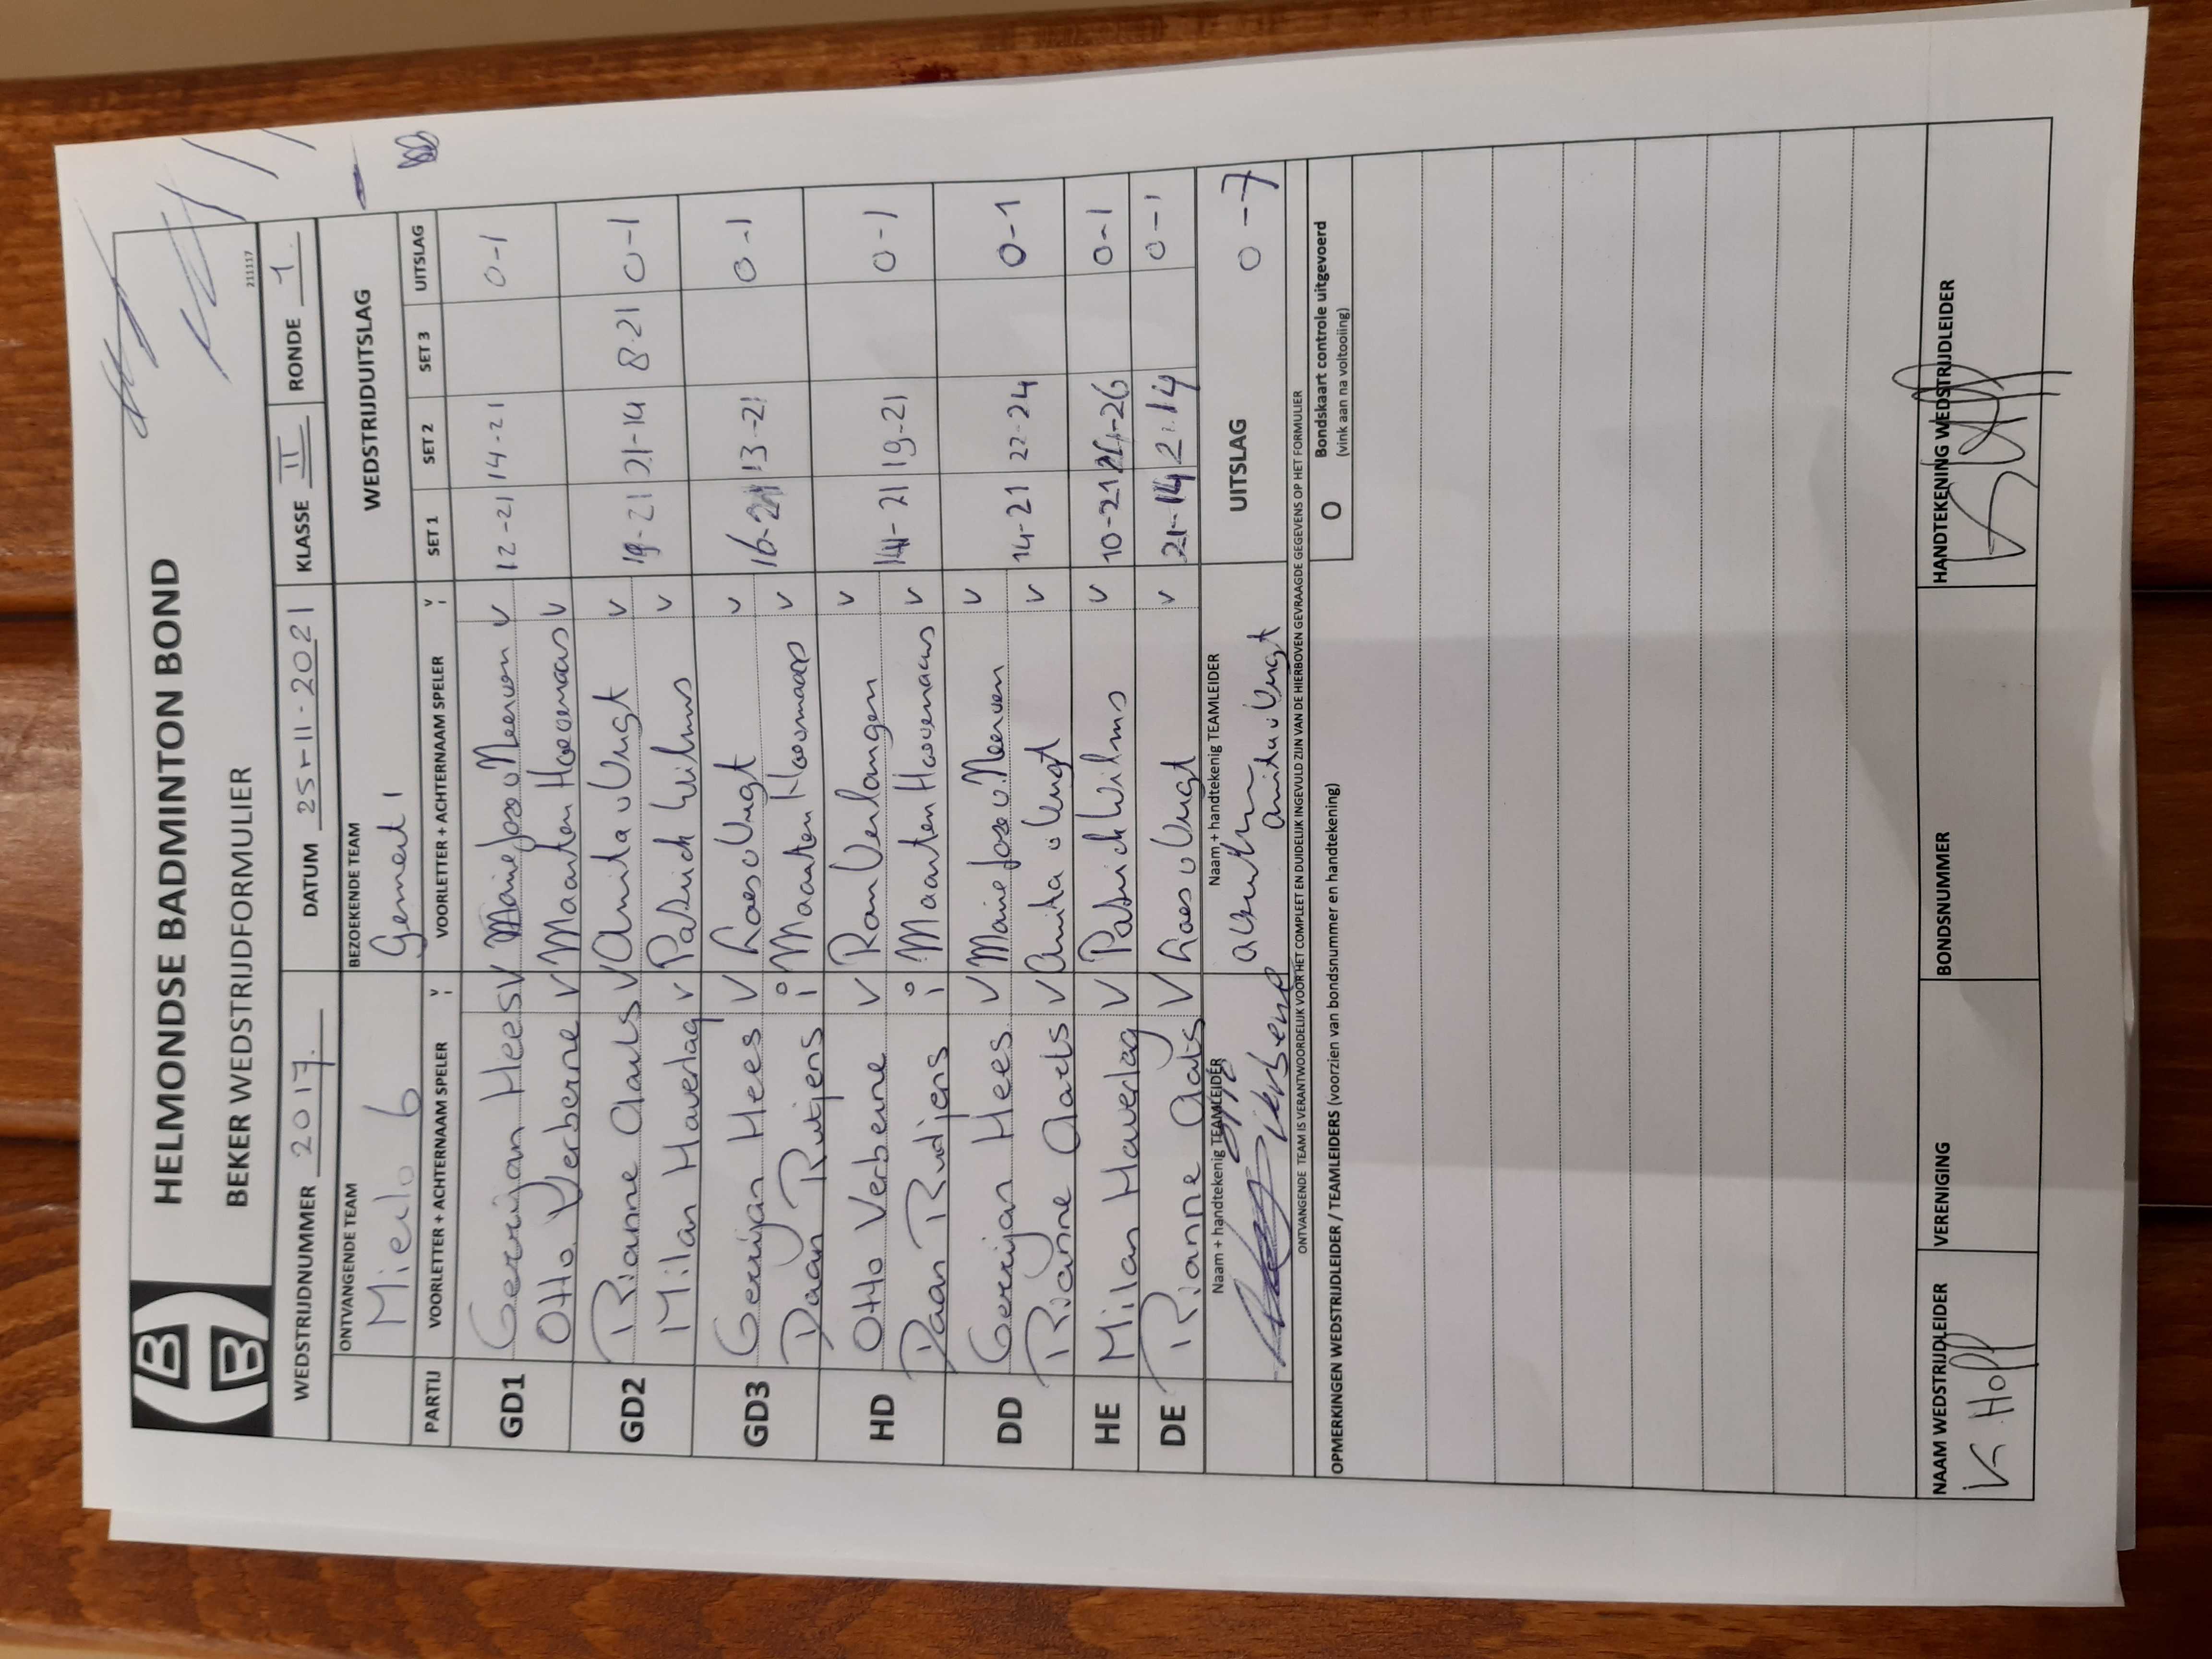 HELMONDSE BADMINTON BOND
BEKER WEDSTRIJDFORMULIER
211117
WEDSTRIJDNUMMER 2017. DATUM 25-11-2021 KLASSE II RONDE 1
ONTVANGENDE TEAM BEZOEKENDE TEAM WEDSTRIJDUITSLAG
Mierlo 6 Gemert 1
PARTIJ VOORLETTER + ACHTERNAAM SPELER VOORLETTER + ACHTERNAAM SPELER SET 1 SET 2 SET 3 UITSLAG
GD1 Gerrijan Hees V Marie Jose v Meerven V 12-21 14-21 0-1
Otto Verberne V Maarten Hoevenaars V
GD2 Rianne Aarts V Anita v Vugt V 19-21 21-14 8-21 0-1
Milan Haverlag V Patrick Wilms V
GD3 Gerrijan Hees V Loes v Vugt V 16-21 13-21 0-1
Daan Rutjens Maarten Hoevenaars V
HD Otto Verberne V Ron Verlangen V 14-21 19-21 0-1
Daan Rutjens Maarten Hoevenaars V
DD Gerrijan Hees V Marie Jose v. Meerven V 14-21 22-24 0-1
Rianne Aarts V Anita v Vugt V
HE Milan Haverlag V Patrick Wilms V 10-21 24-26 0-1
DE Rianne Aarts V Loes v Vugt V 21-14 21-14 0-1
Naam + handtekenig TEAMLEIDER Naam + handtekenig TEAMLEIDER UITSLAG 0-7
Anita v Vugt
ONTVANGENDE TEAM IS VERANTWOORDELIJK VOOR HET COMPLEET EN DUIDELIJK INGEVULD ZIJN VAN DE HIERBOVEN GEVRAAGDE GEGEVENS OP HET FORMULIER
OPMERKINGEN WEDSTRIJDLEIDER / TEAMLEIDERS (voorzien van bondsnummer en handtekening)
O Bondskaart controle uitgevoerd
(vink aan na voltooiing)
NAAM WEDSTRIJDLEIDER VERENIGING BONDSNUMMER HANDTEKENING WEDSTRIJDLEIDER
K. Hopp